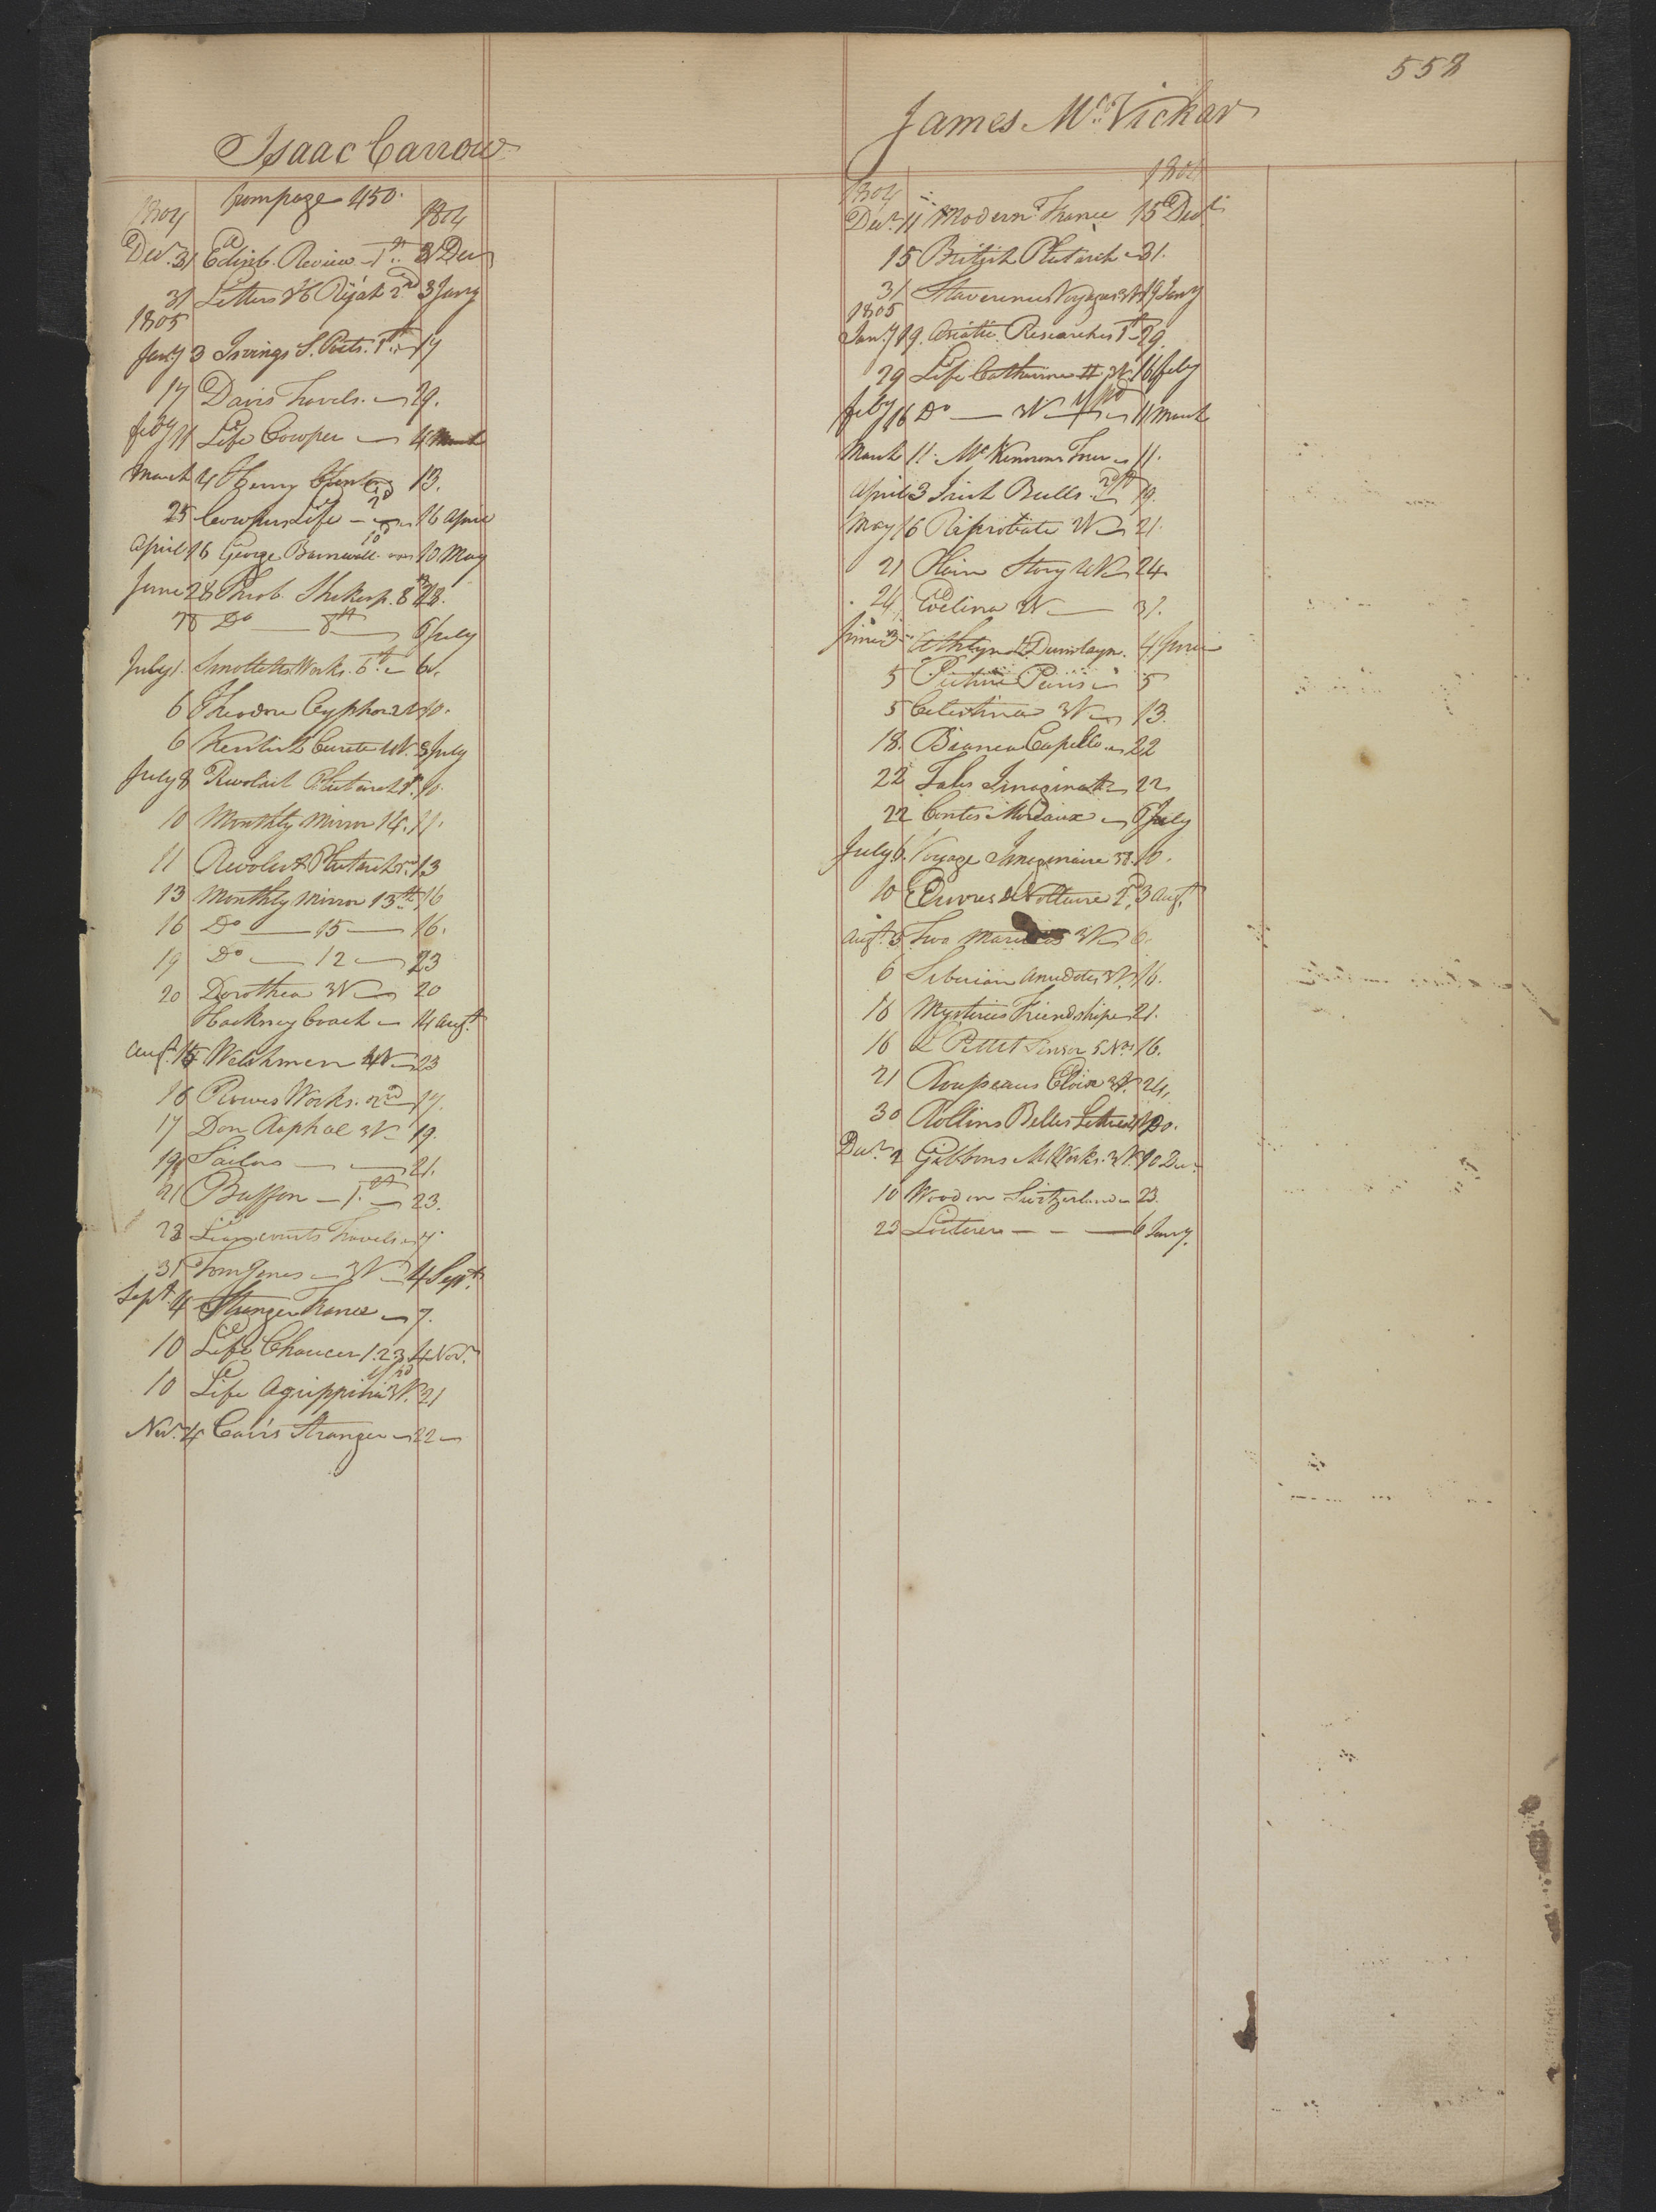 558
Isaac Carrow
from page 450.
1804 1804
Decr. 31 Edinb. Review 1st. 31 Decr
31 Letters H Rajah 2nd 3 Jany
1805
Jany 3 Irvings S. Poets. 1st 17
17 Davis Travels. 29.
Feby 11 Life Cowper 4 March
March 4 Henry 13.
25 Cowpers Life - 2d 16 April
April 16 George Barnwell 10 May
June 28 Shaksp. 8 28.
28 Do 8th 6 July
July 1. Smolletts Works. 6th 6.
6 Theodore Cyphon 2V 10.
6 Kentish Curate 4V. 8 July
July 8 Revolut Plutarch 10.
10 Monthly Mirror 14. 11.
11 Revolut Plutarch 13
13 Monthly Mirror 13th 16
16 Do 15 16.
19 Do 12 23
20 Dorothea 3V 20
Hackney Coach 14 Augt
Augt. 15 Welshmen 4V 23
16 Rowes Works. 2nd 17.
17 Don Raphael 3V 19.
19 Sailors 21.
21 Buffon 1.st 23.
23 Liancourts Travels 7
31 Tom Jones 3V 4 Sept.
Sept 4 Stranger France 7.
10 Life Chaucer 1.2.3. 4 Nov.
10 Life Agrippina 3V. 21
Nov. 4 Carrs Stranger 22
James McVickar
1804 1804
Decr. 11 Modern France 15 Decr
15 British Plutarch 31.
31 Stavorinus Voyages 3V 19 Jany
1805
Jany 19. Asiatic Researches 1st 29.
29 Life Catharine II 16 Feby
Feby 16 Do 3V 11 March
March 11. McKinnons Tour 11.
April 3 Irish Bulls. 19.
May 16 Reprobate 2V 21.
21 Plain Story 4V 24
24 Evelina 2V 31.
June 3 Athlyn & Dumbayn. 4 June
5 Picture Paris 5
5 Celestina 3V 13.
18. Bianca Capello 22
22 Tales Imaginatn 22
22 Contes Moraux 6 July
July 6. Voyage Imaginaire 38. 10.
10 Œuvres de Voltaire 2d. 3 Augt.
Augt. 3 Two 3V 6.
6 Siberian Anecdotes 3V. 16.
16 Mysteries Friendship 21.
16 5 Nos 16.
21 Rousseaus Eloise 3V. 24.
30 Rollins Belles Lettres 30.
Decr. 2 Gibbons M. Works. 3V. 10 Decr.
10 Wood on Switzerland 23.
23 Loiterer 6 Jany.